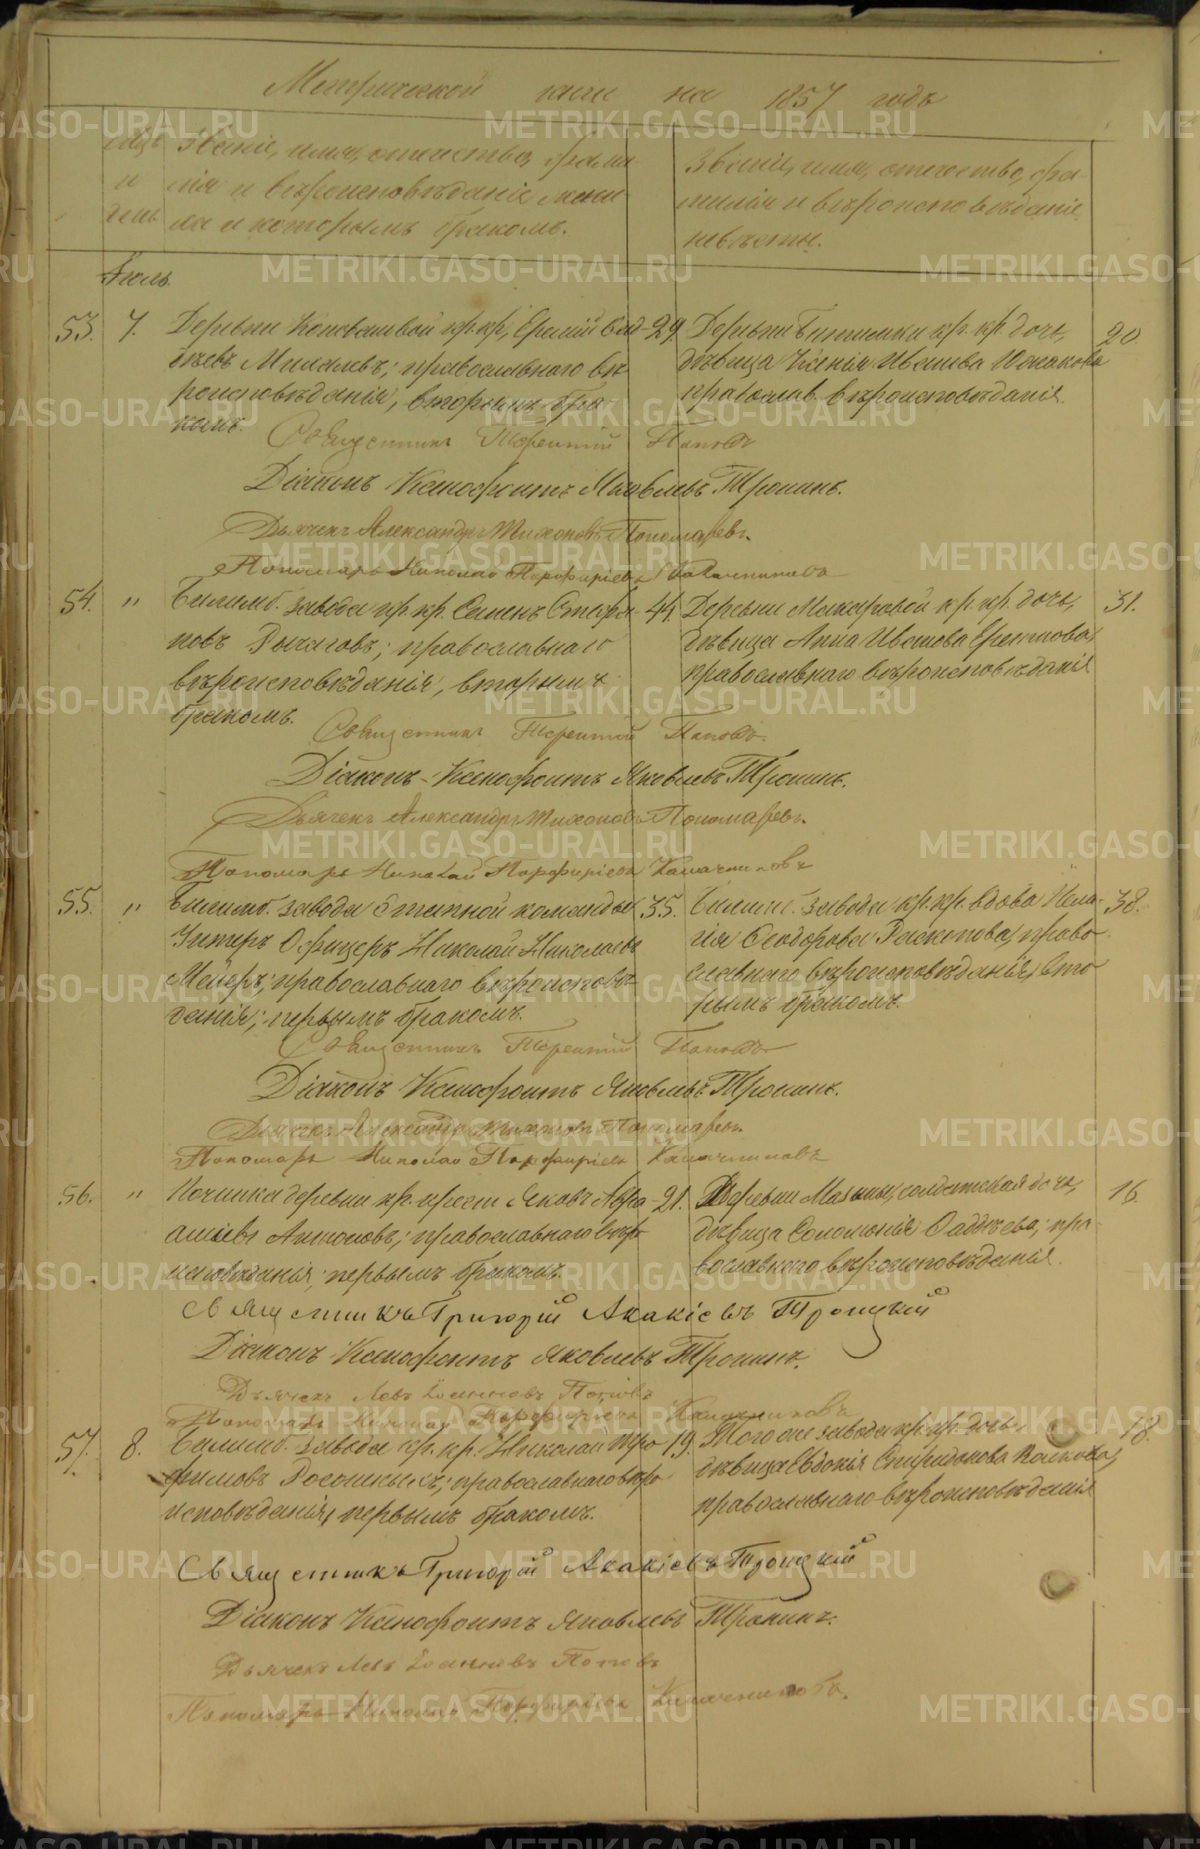 Метрической книги на 1857 годъ
Мцъ и день
Званіе, имя, отечество, фами-
лія и вѣроисповѣданіе жени-
ха и которымъ бракомъ.
Званіе, имя, отечество, фа-
милія и вѣроисповѣданіе
невѣсты.
Іюль.
53. 7. Деревни кр. кр.
православнаго вѣ-
роисповѣданія, вторымъ бра-
комъ.
29.
Деревни Битимки кр. кр. дочь,
дѣвица Ксенія Иванова
православ. вѣроисповѣданія.
20
Священникъ Терентій Поповъ
Діаконъ Ксенофонтъ Яковлевъ Тронинъ.
Дьячекъ Александръ Тихоновъ Пономаревъ.
Пономарь Николай Порфиріевъ Калачниковъ
54. " Билимб. завода кр. кр. Семенъ Стефа-
новъ Рычаговъ; православнаго
вѣроисповѣданія, вторымъ
бракомъ.
44.
Деревни Макаровой кр. кр. дочь,
дѣвица Анна Иванова
православнаго вѣроисповѣданія
31.
Священникъ Терентій Поповъ.
Діаконъ Ксенофонтъ Яковлевъ Тронинъ.
Дьячекъ Александръ Тихоновъ Пономаревъ.
Пономарь Николай Порфиріевъ Калачниковъ
55. " Билимб. завода Этапной команды
Унтеръ Офицеръ Николай Николаевъ
Мейеръ; православнаго вѣроисповѣ-
данія; первымъ бракомъ.
35.
Билимб. завода кр. кр. вдова Пела-
гія Ѳеодорова право-
славнаго вѣроисповѣданія, вто-
рымъ бракомъ.
38.
Священникъ Терентій Поповъ
Діаконъ Ксенофонтъ Яковлевъ Тронинъ.
Дьячекъ Александръ Тихоновъ Пономаревъ.
Пономарь Николай Порфиріевъ Калачниковъ
56. " Починка деревни кр. крест. Яковъ Афа-
насіевъ православнаго вѣро-
исповѣданія; первымъ бракомъ.
21.
Деревни солдатская дочь,
дѣвица Соломонія Ѳаддѣева; пра-
вославнаго вѣроисповѣданія.
16.
Священникъ Григорій Акакіевъ Троицкій
Діаконъ Ксенофонтъ Яковлевъ Тронинъ.
Дьячекъ Левъ Іоанновъ Поповъ
Пономарь Николай Порфиріевъ Калачниковъ
57. 8. Билимб. завода кр. кр. Николай Тро-
фимовъ православнаго вѣро-
исповѣданія, первымъ бракомъ.
19.
Того же завода кр. кр. дочь,
дѣвица Евдокія Спиридонова
православнаго вѣроисповѣданія
18.
Священникъ Григорій Акакіевъ Троицкій
Діаконъ Ксенофонтъ Яковлевъ Тронинъ.
Дьячекъ Левъ Іоанновъ Поповъ
Пономарь Николай Порфиріевъ Калачниковъ.
METRIKI.GASO-URAL.RU